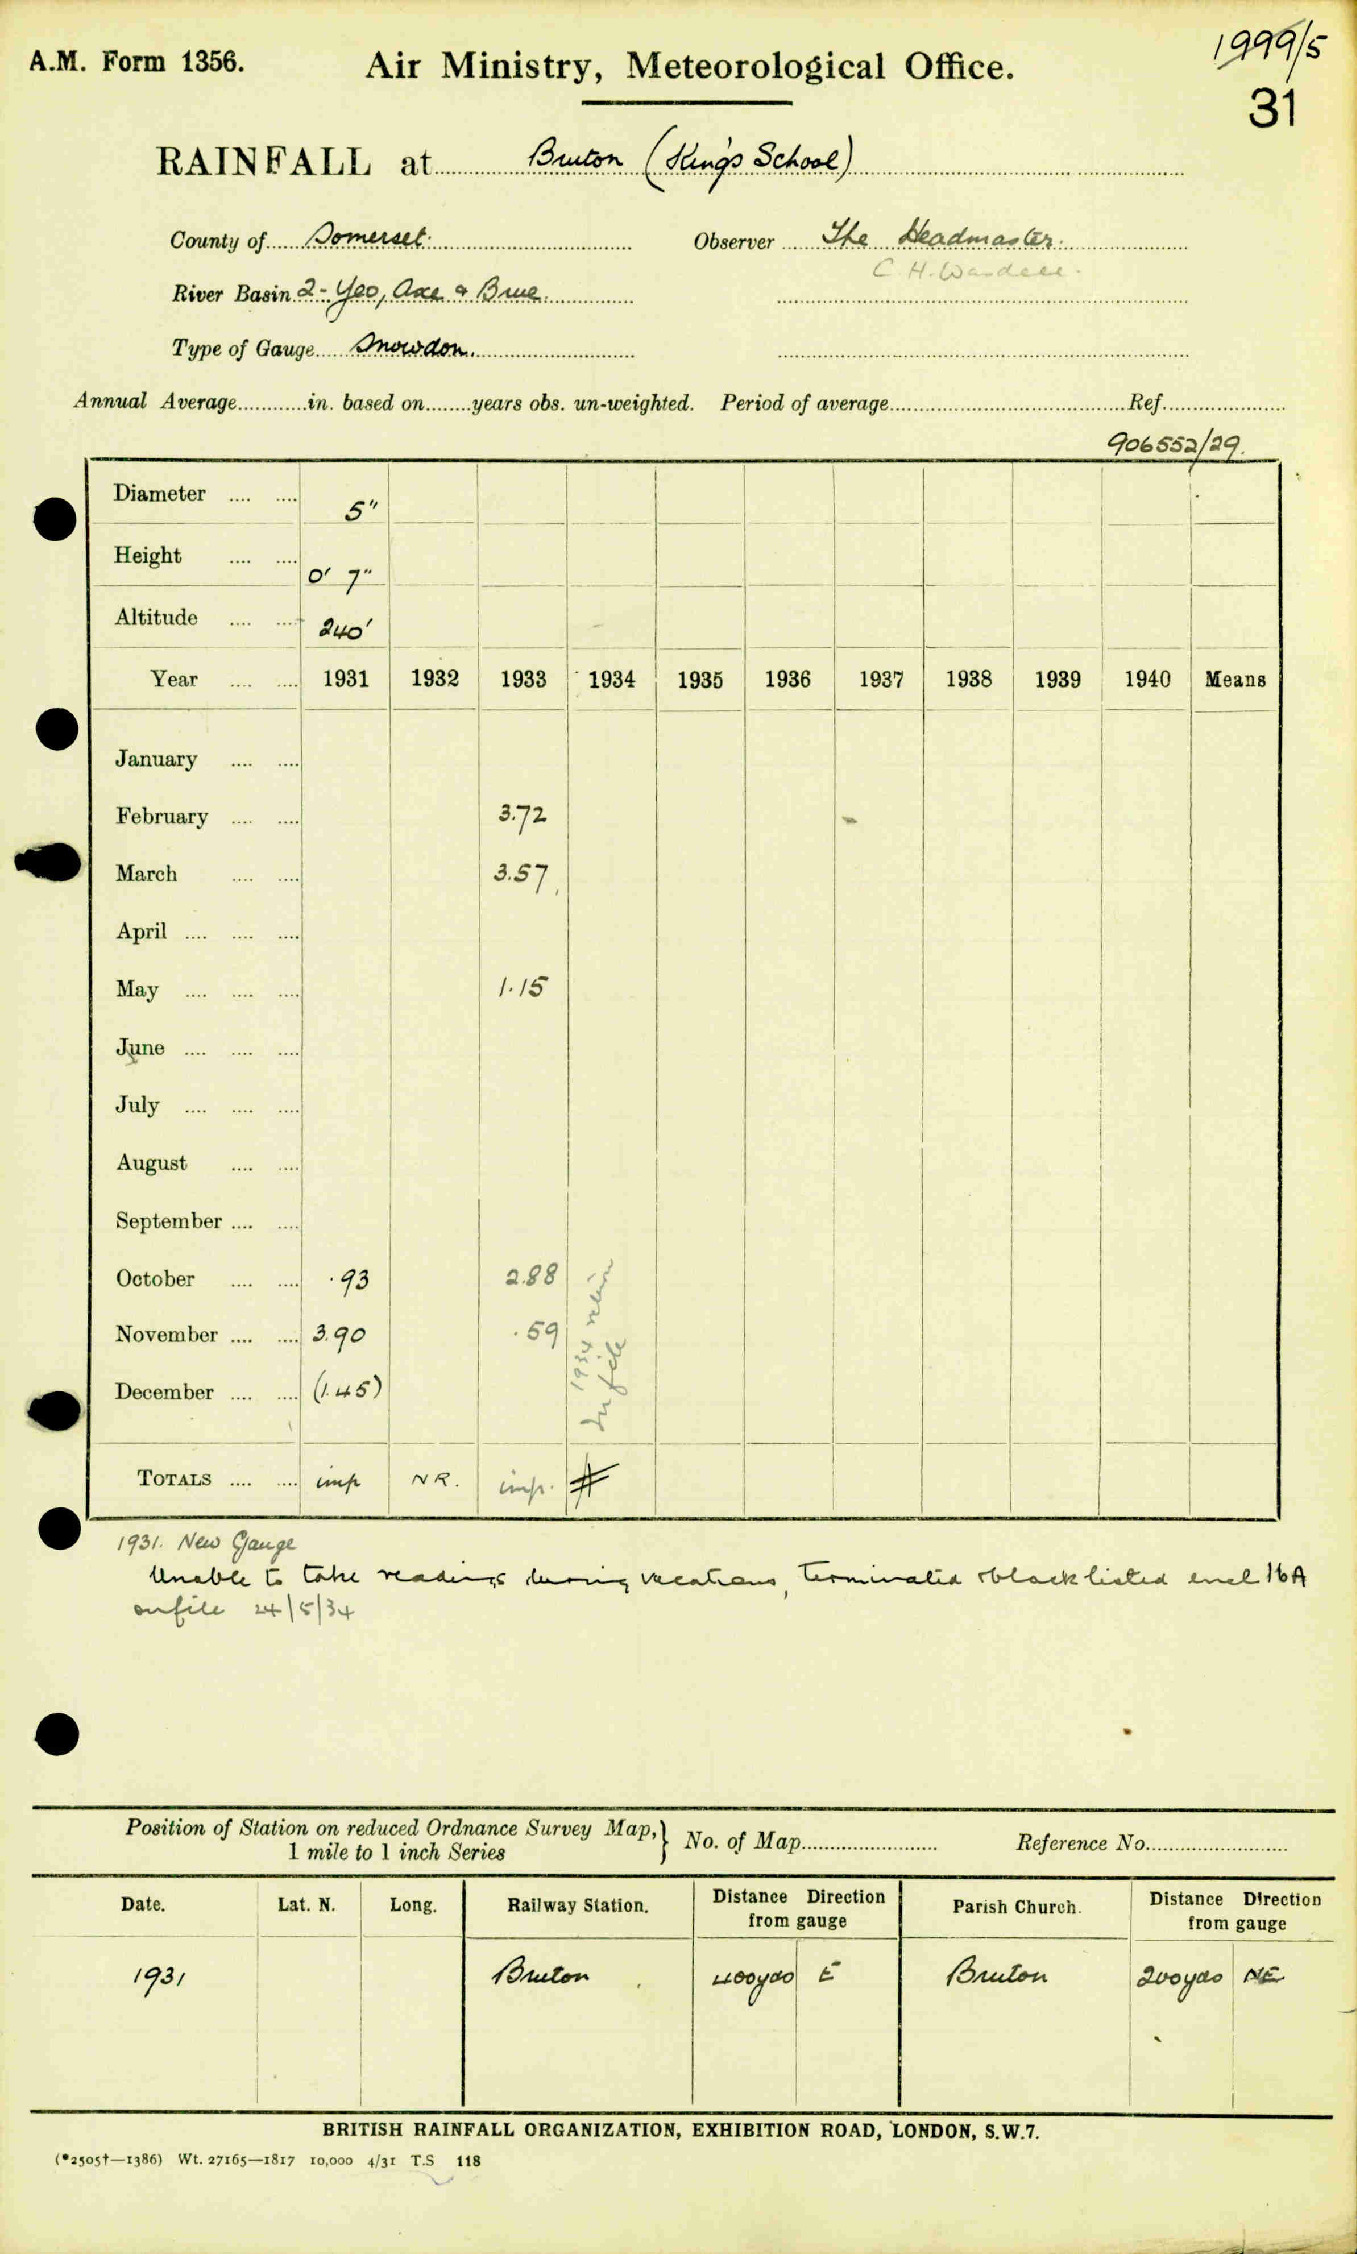 1999/5
A.M. Form 1356. Air Ministry, Meteorological Office.
31
RAINFALL at Bruton (King's School)
County of Somerset. Observer The Headmaster.
C. H. Wardell.
River Basin 2 - Yeo, Axe & Brue.
Type of Gauge Snowdon.
Annual Average in. based on years obs. un-weighted. Period of average Ref.
906552/29.
Diameter 5"
Height 0' 7"
Altitude 240'
Year 1931 1932 1933 1934 1935 1936 1937 1938 1939 1940 Means
January
February 3.72
March 3.57
April
May 1.15
June
July
August
September
October .93 2.88
November 3.90 .59
December (1.45)
1934 return
in file
TOTALS imp NR. imp. #
1931. New Gauge
Unable to take readings during vacations, terminated & blacklisted encl 16A
on file 24/5/34
Position of Station on reduced Ordnance Survey Map, } No. of Map Reference No.
1 mile to 1 inch Series
Date. Lat. N. Long. Railway Station. Distance Direction from gauge Parish Church. Distance Direction from gauge
1931 Bruton 400yds E Bruton 200yds NE
BRITISH RAINFALL ORGANIZATION, EXHIBITION ROAD, LONDON, S.W.7.
(*2505†—1386) Wt. 27165—1817 10,000 4/31 T.S 118